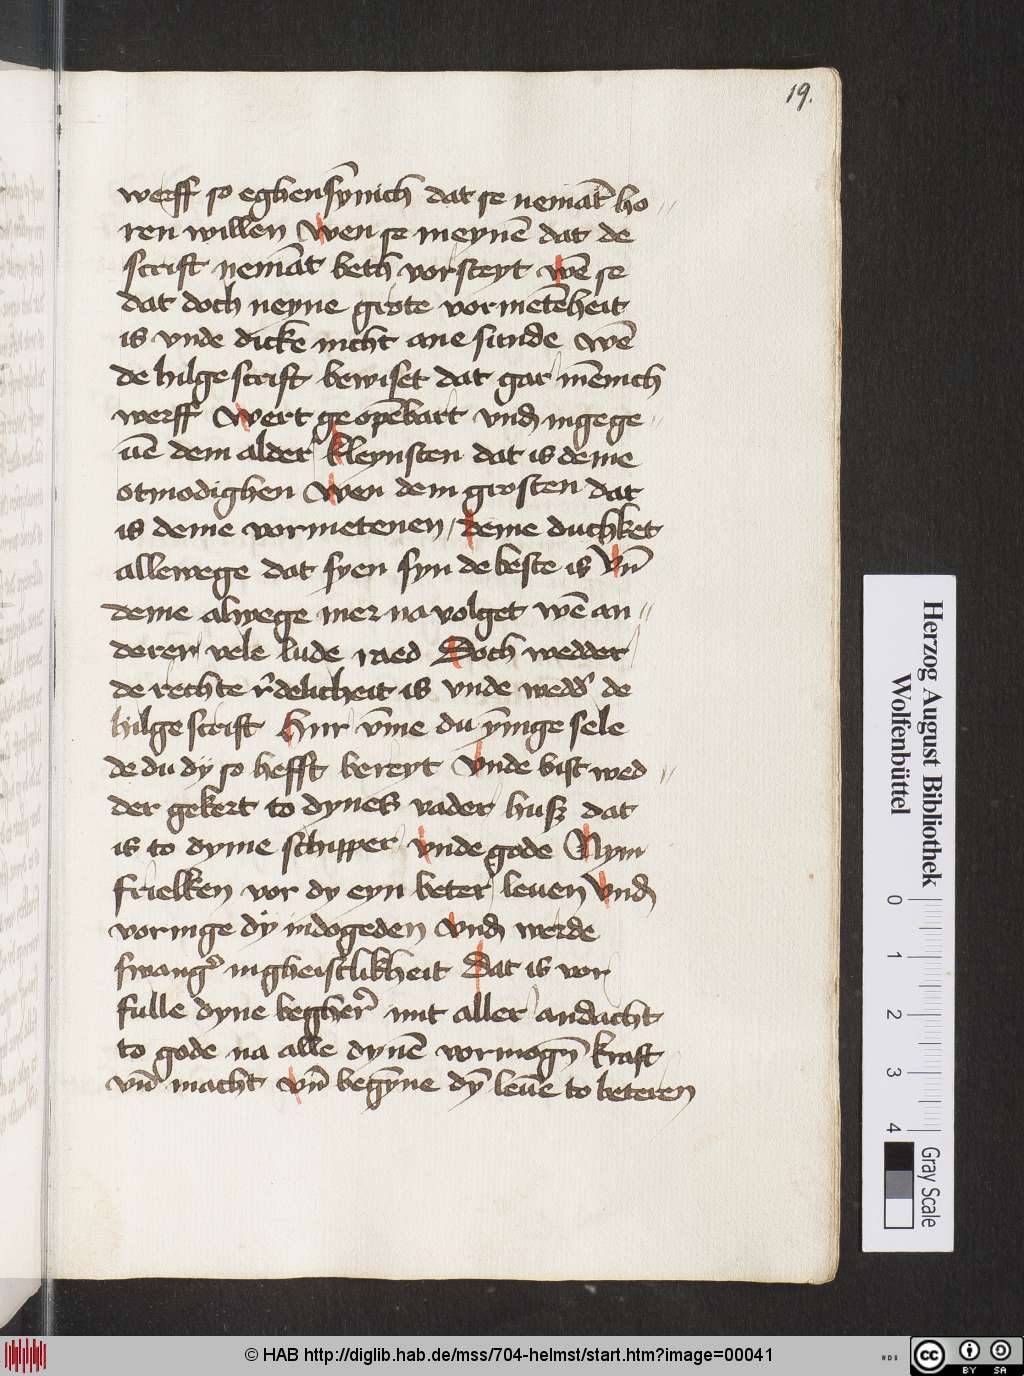 19.
werff so eghensȳnich dat se nemāt ho〃
ren willen Wen se meynē dat de
scrift nemāt beth vorsteyt wē se
dat doch neyne grote vormetēheit
is vnde dicke nicht ane sunde wē
de hilge scrift bewiset dat gar mēnich
werff Wert ge opēbart vnd ingege〃
uē dem alder kleynsten dat is deme
otmodighen Wen dem grosten dat
is deme vormetenen / deme duchket
allewege dat syen syn de beste is Vn̄
deme alwege mer na volget wē an〃
deren vele lude raed Doch wedder
de rechte r̄delicheit is vnde wedd' de
hilge scrift Hur vm̄e du ȳnige sele
de du dÿ so hefft bereyt Vnde bist wed〃
der gekert to dynes vader husz dat
is to dyme schipper vnde gode Nym
frielken vor dy eyn beter leuen Vnd
voringe dÿ indogeden Vnd werde
swang' ingheistlikheit Dat is vor
fulle dyne begher' mit aller andacht
to gode na alle dynē vormogn̄ kraft
vn̄ macht vn̄ begȳne dȳ leuē to beteren
Herzog August Bibliothek
Wolfenbüttel
0 1 2 3 4
Gray Scale
© HAB http://diglib.hab.de/mss/704-helmst/start.htm?image=00041
HAB
cc BY SA